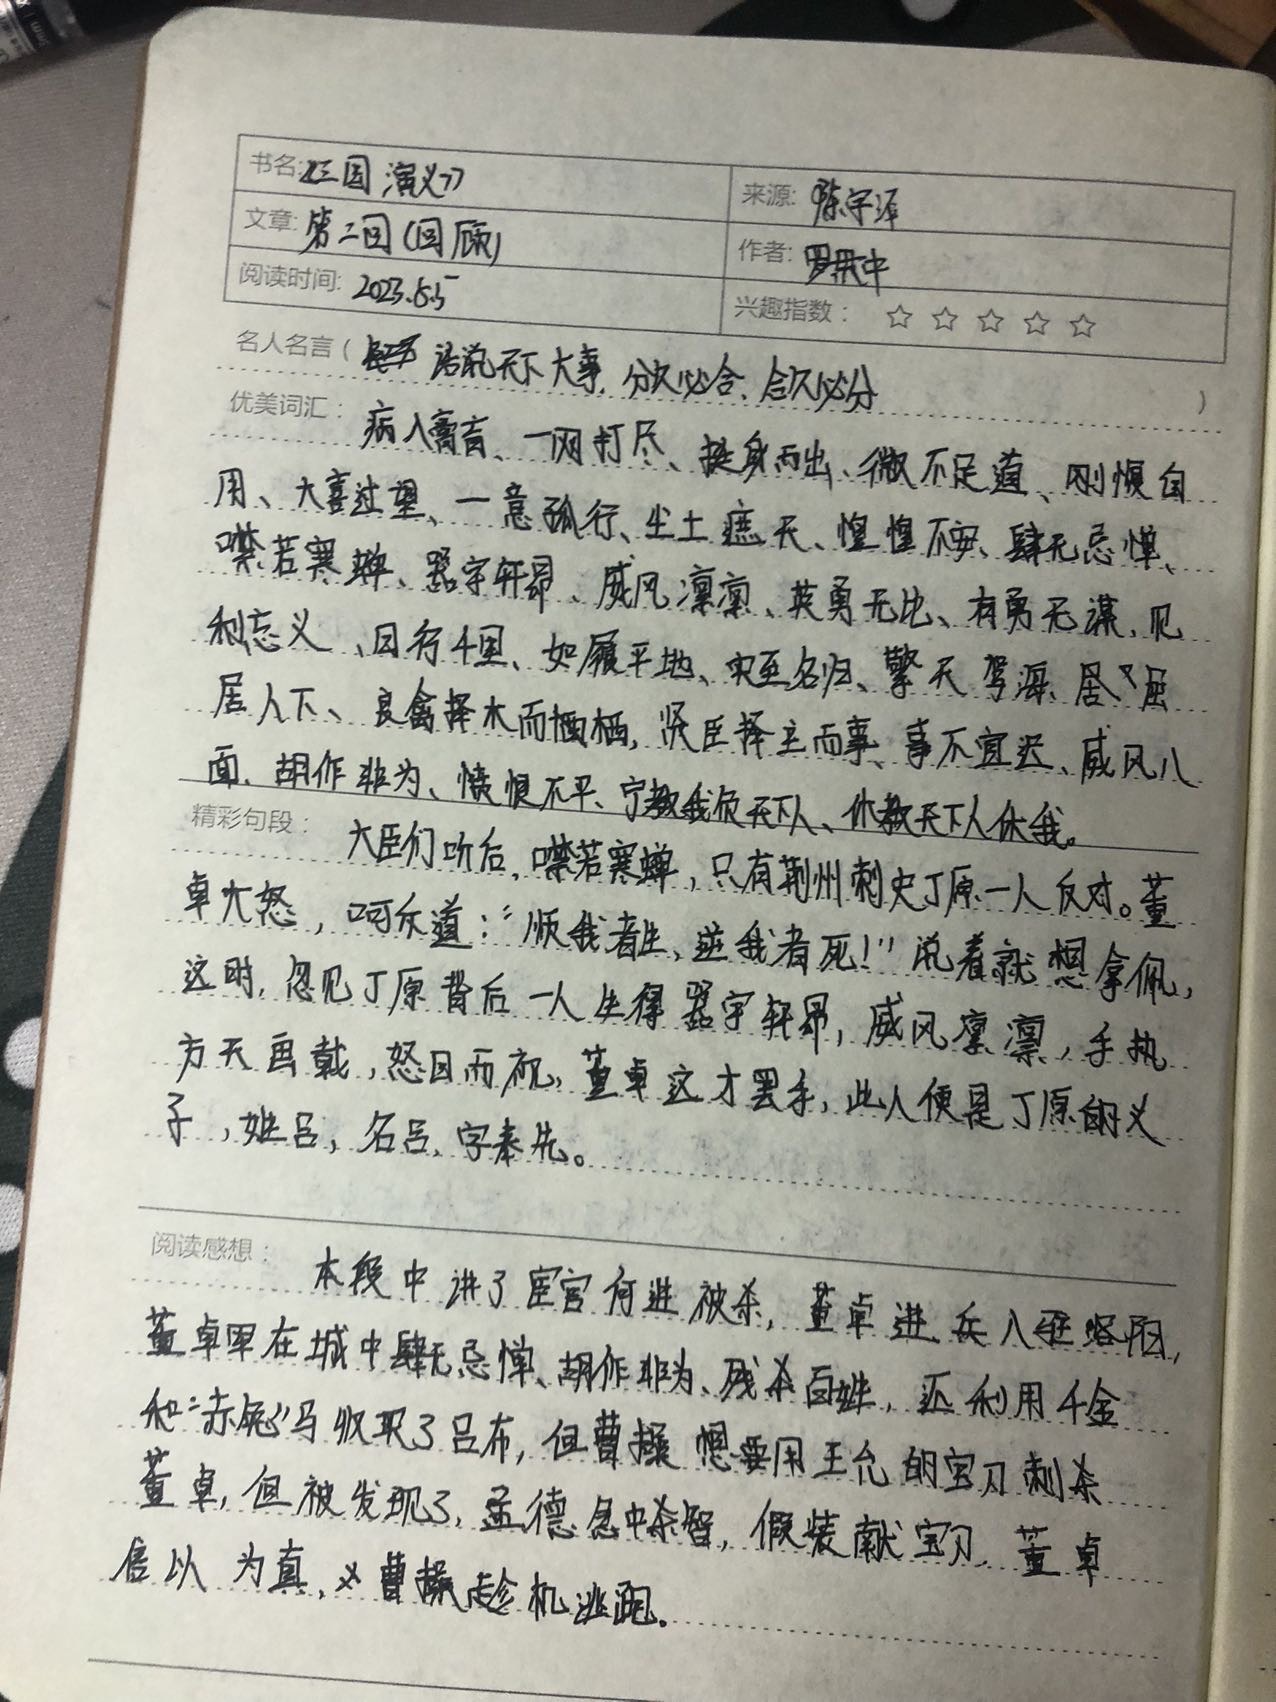 书名:《三国演义》 来源: 陈宇泽
文章: 第二回(回顾) 作者: 罗贯中
阅读时间: 2023.5.5 兴趣指数: ☆ ☆ ☆ ☆ ☆
名人名言( 话说天下大事,分久必合、合久必分 )
优美词汇: 病入膏肓、一网打尽、挺身而出、微不足道、刚愎自
用、大喜过望、一意孤行、尘土遮天、惶惶不安、肆无忌惮、
噤若寒蝉、器宇轩昂、威风凛凛、英勇无比、有勇无谋、见
利忘义、日行千里、如履平地、实至名归、擎天驾海、屈
居人下、良禽择木而栖栖,贤臣择主而事、事不宜迟、威风八
面、胡作非为、愤恨不平、宁教我负天下人、休教天下人休我。
精彩句段: 大臣们听后,噤若寒蝉,只有荆州刺史丁原一人反对。董
卓大怒,呵斥道:“顺我者生、逆我者死!”说着就想拿佩,
这时,忽见丁原背后一人生得器宇轩昂,威风凛凛,手执
方天画戟,怒目而视,董卓这才罢手,此人便是丁原的义
子,姓吕,名吕,字奉先。
阅读感想: 本段中讲了宦官何进被杀,董卓进兵入驻洛阳,
董卓军在城中肆无忌惮、胡作非为、残杀百姓,还利用千金
和“赤兔”马收取了吕布,但曹操想要用王允的宝刀刺杀
董卓,但被发现了,孟德急中杀智,假装献宝刀,董卓
信以为真,曹操趁机逃跑.